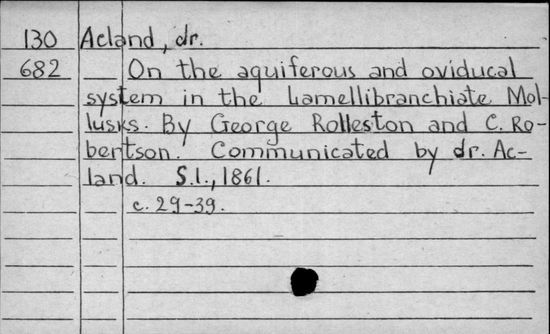 130 Acland, dr.
682 On the aquiferous and oviducal
system in the Lamellibranchiate Mol-
lusks. By George Rolleston and C. Ro-
bertson. Communicated by dr. Ac-
land. S.l., 1861.
c. 29-39.